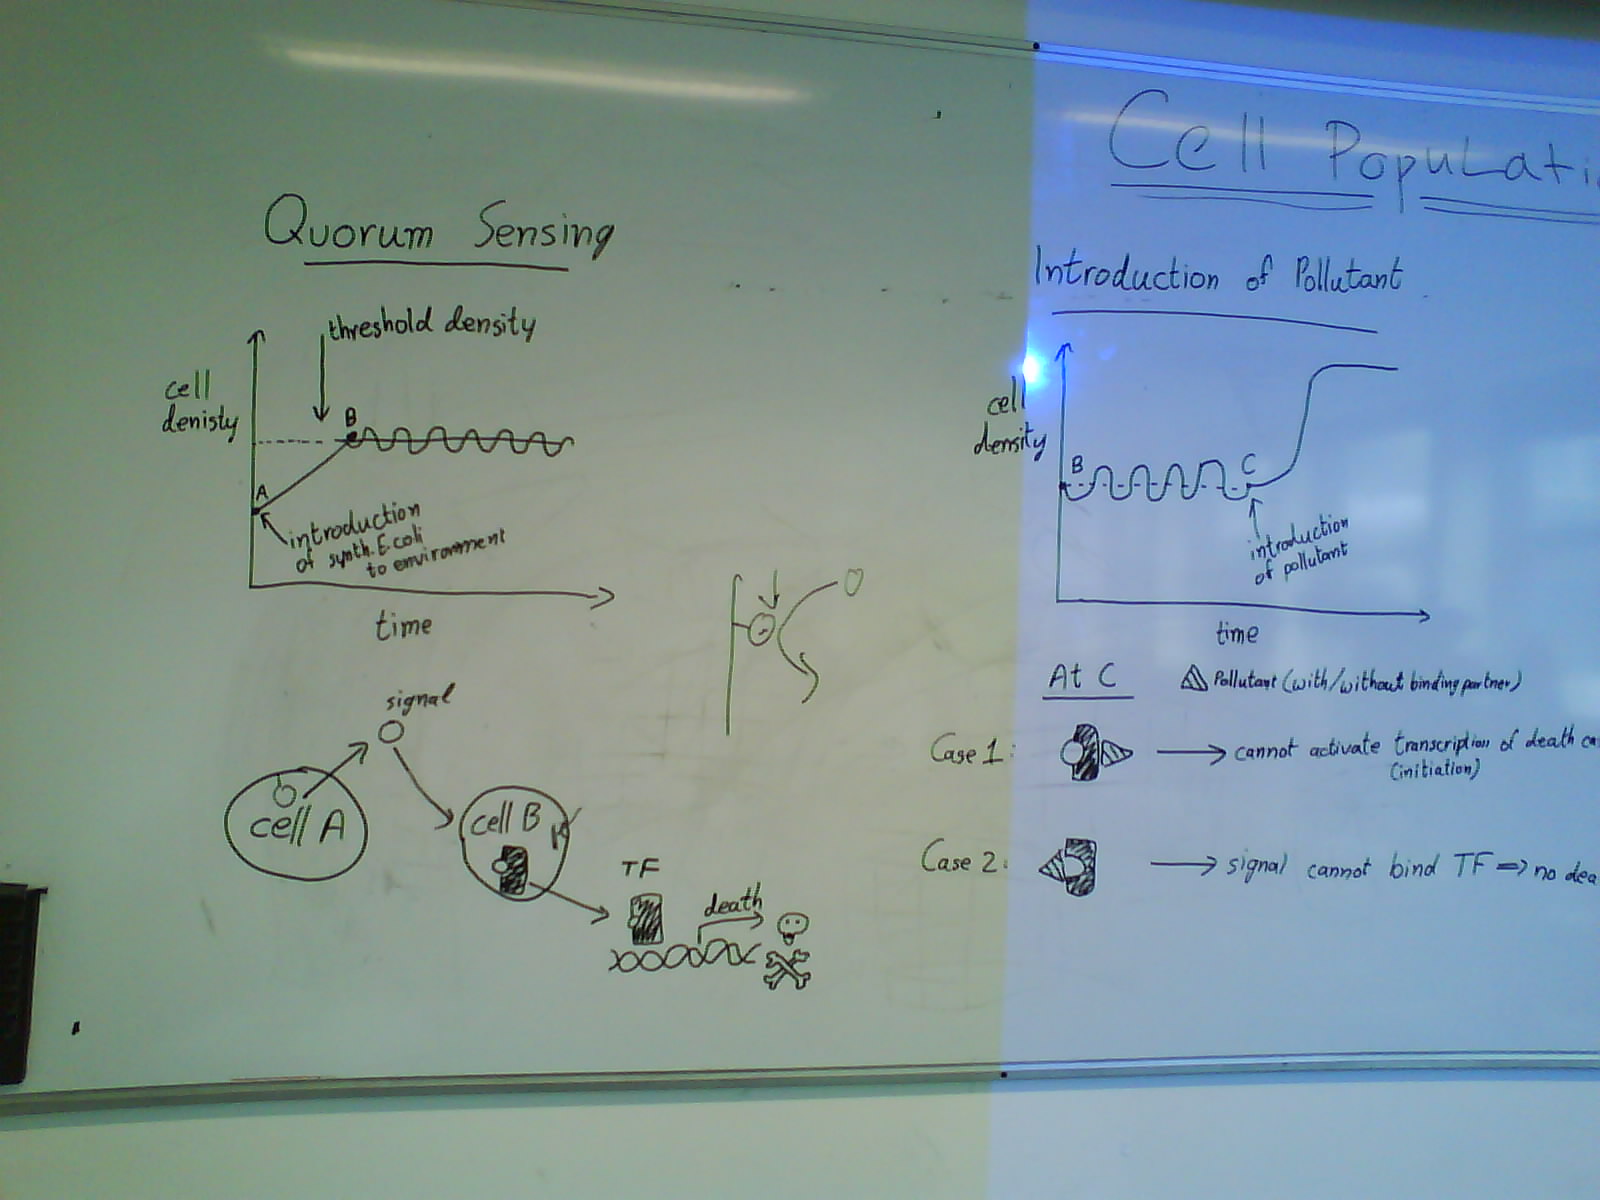 Quorum Sensing
threshold density
cell
denisty
B
A
introduction
of synth. E.coli
to environment
time
signal
cell A
cell B
TF
death
Cell PopuLati
Introduction of Pollutant
cell
density
B
C
introduction
of pollutant
time
At C
Pollutant (with/without binding partner)
Case 1:
cannot activate transcription of death ca
(initiation)
Case 2:
signal cannot bind TF => no dea